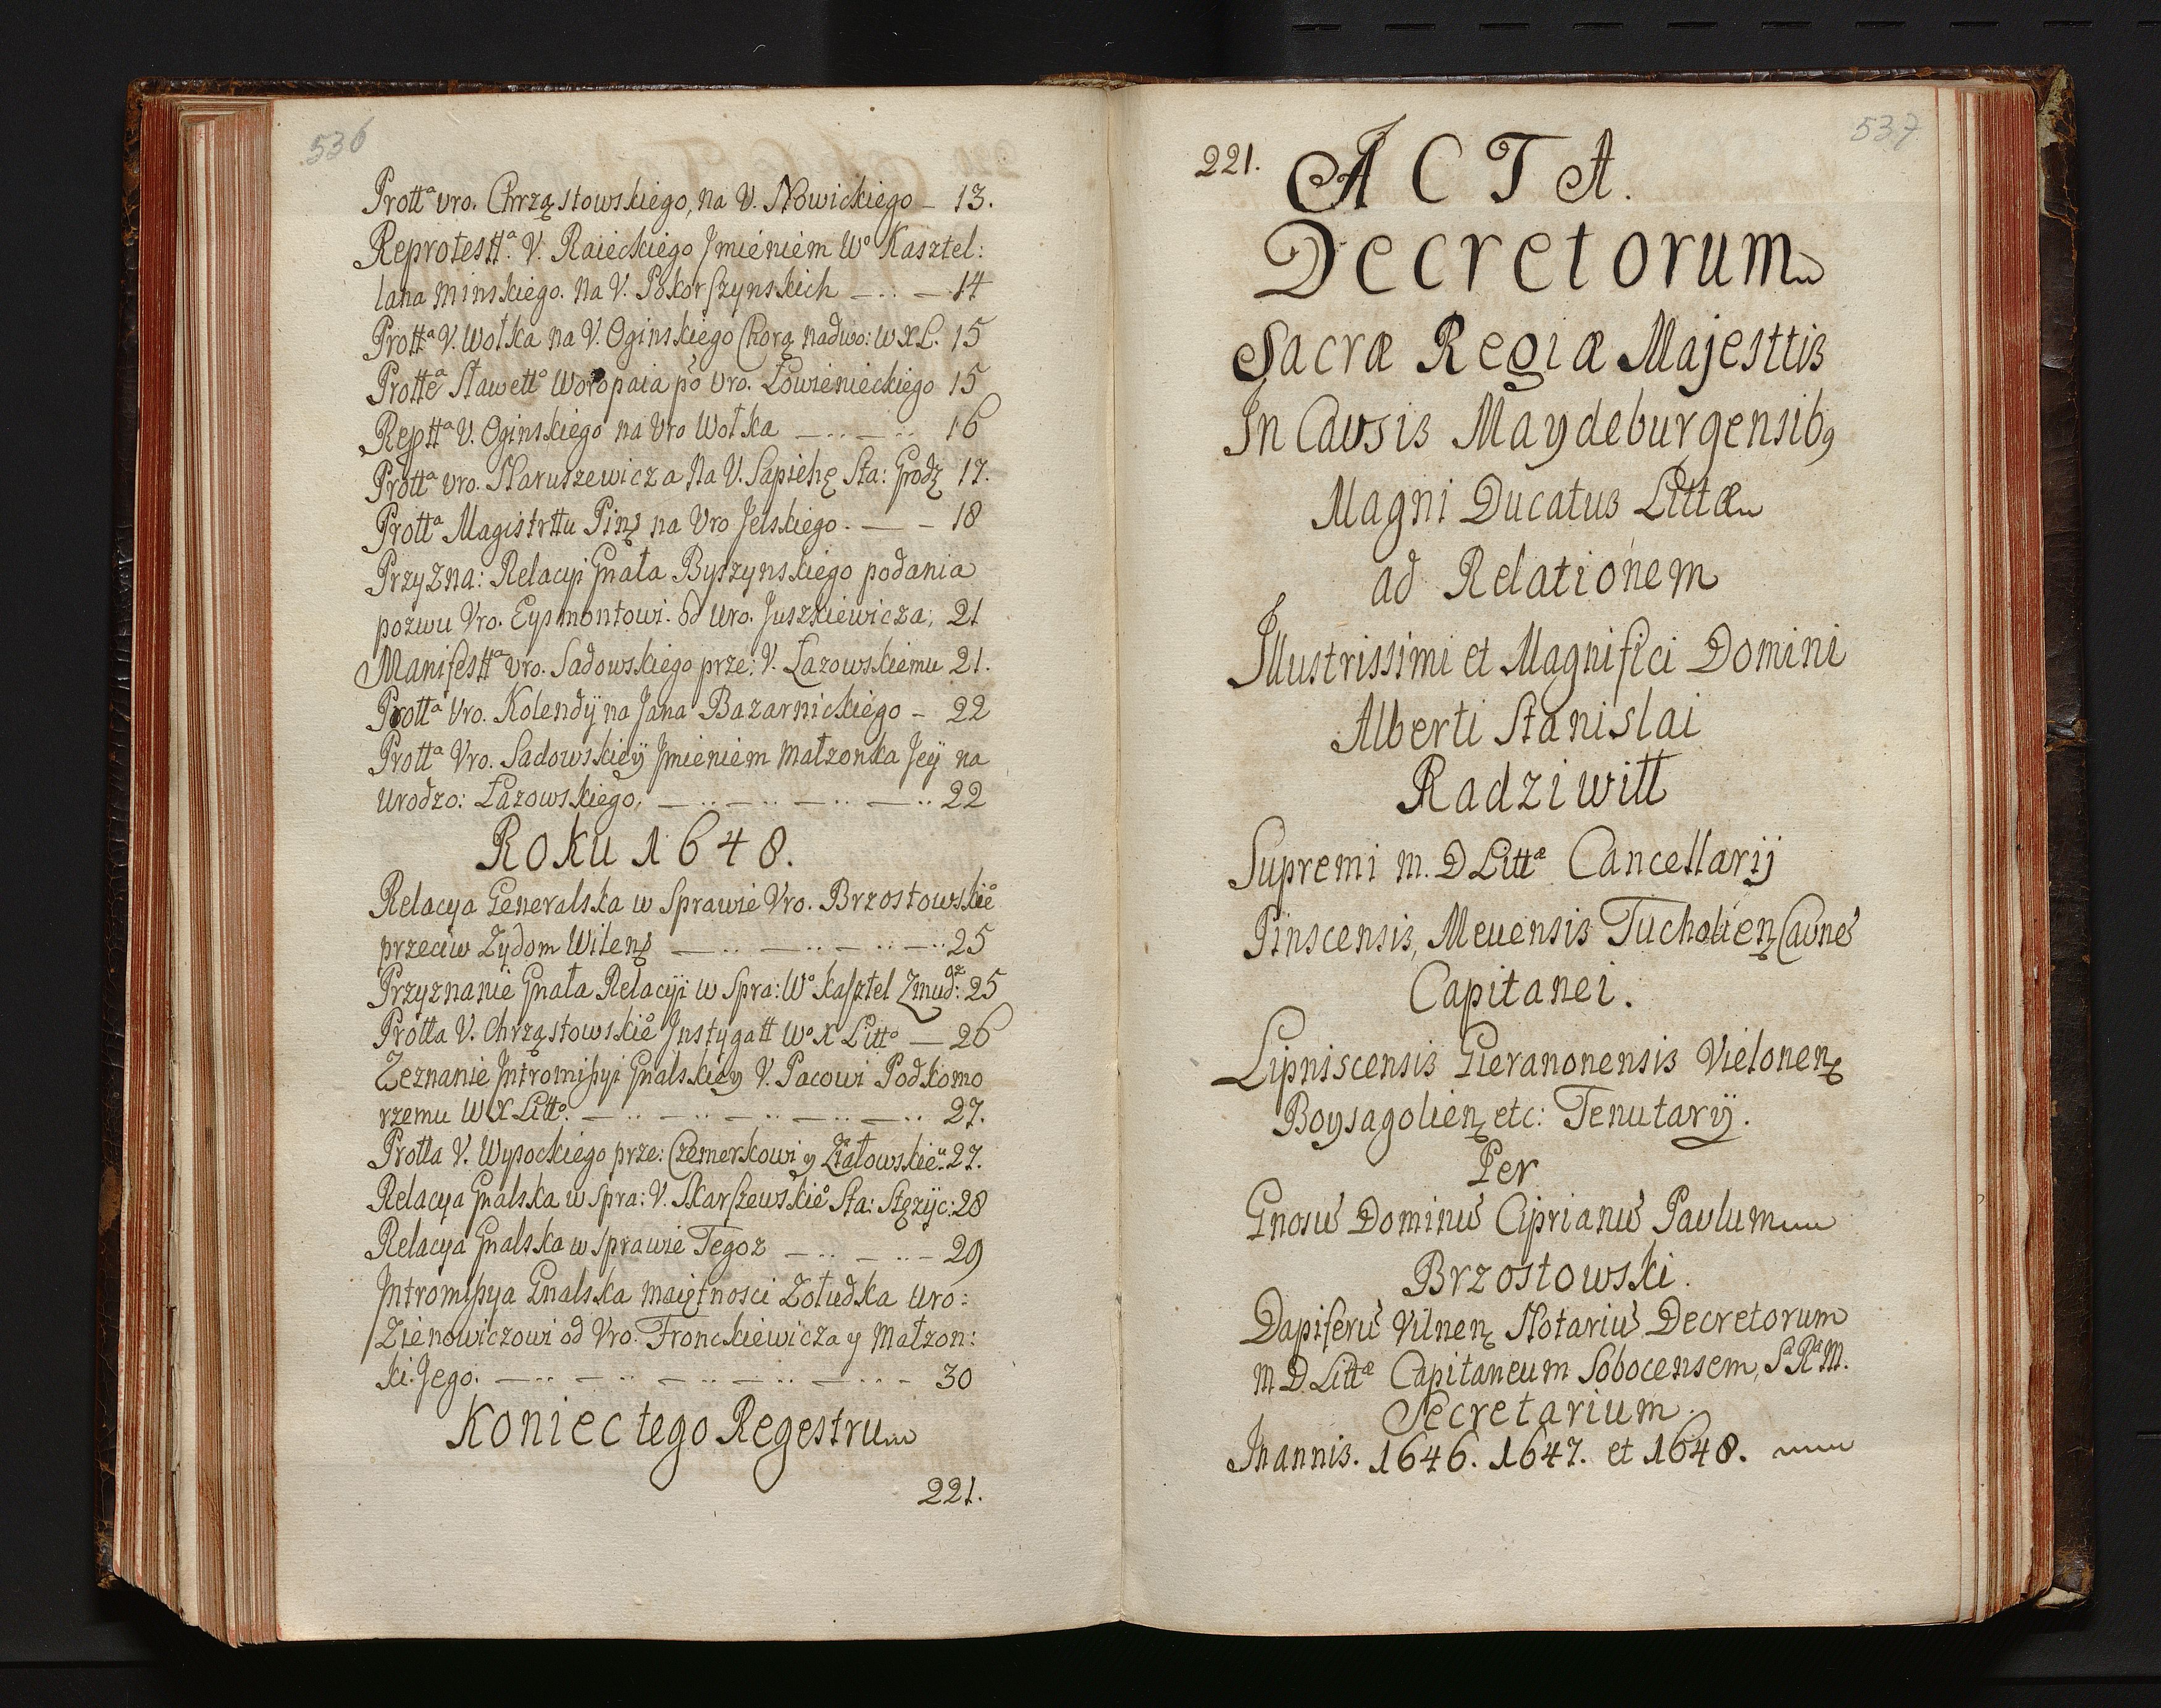 536
Prott^a Vro. Chrząstowskiego, na V. Nowickiego – 13.
Reprotestt^a. V. Raieckiego Jmieniem W^o Kasztel:
lana Minskiego. na V. Pokorszynskich — .. — 14
Prott^a V. Wołka na V. Oginskiego Chorą nadwo: W X L. 15
Protte^a Sławett^o Woropaia po Vro. Łowienieckiego 15
Reptt^a V. Oginskiego na Vro Wołka — .. — .. 16
Prott^a Vro. Naruszewicza Na V. Sapiehę Sta: Grodz 17.
Prott^a Magistrttu Pinş na Vro Jelskiego. — – 18
Przyzna: Relacyi Gnała Byszynskiego podania
pozwu Vro. Eysmontowi. od Uro. Juszkiewicza; 21
Manifestt^a Vro. Sadowskiego prze: V. Łazowskiemu 21.
Prott^a Vro. Kolendÿ na Jana Bazarnickiego – 22
Prott^a Vro. Sadowskieÿ Jmieniem Małzonka Jeÿ na
Urodzo: Łazowskiego, — .. — .. — .. — .. 22
Roku 1648.
Relacya Generalska w Sprawie Vro. Brzostowskie^o
przeciw Zydom Wilenş — .. — .. — .. — .. 25
Przyznanie Gnała Relacyi w Spra: W^o Kasztel Zmudz: 25
Protta V. Chrząstowskie^o Jnstygatt W^o X Litt^o — 26
Zeznanie Jntromissyi Gnalskiey V. Pacowi Podkomo
rzemu W X Litt^o. — .. — .. — .. — .. — .. 27.
Protta V. Wysockiego prze: Czemerkowi y Działowskie^u. 27.
Relacya Gnalska w Spra: V. Skarszewskie^o Sta: Stęzÿc: 28
Relacya Gnalska w Sprawie Tegoz — .. — .. – 29
Jntromissya Gnalska maiętnosci Zołudka Uro:
Zienowiczowi od Vro. Fronckiewicza y Małzon:
ki Jego. — .. — .. — .. — .. — .. – 30
Koniec tego Regestru
221.
537
221. ACTA.
Decretorum
Sacræ Regiæ Majesttis
In Causis Maydeburgensibq
Magni Ducatus Littæ
ad Relationem
Illustrissimi et Magnifici Domini
Alberti Stanislai
Radziwiłł
Supremi M. D Litt^æ Cancellarij
Pinscensis, Mevensis Tucholienş Caune^s
Capitanei.
Lipniscensis Gieranonensis Vielonenş
Boysagolienş etc: Tenutarÿ.
Per
Gnosu^s Dominu^s Ciprianu^s Paulum
Brzostowski.
Dapiferu^s Vilnenş Notariu^s Decretorum
M D. Litt^æ Capitaneum Sobocensem, S^æ R^æ M.
Secretarium.
In annis. 1646. 1647. et 1648.